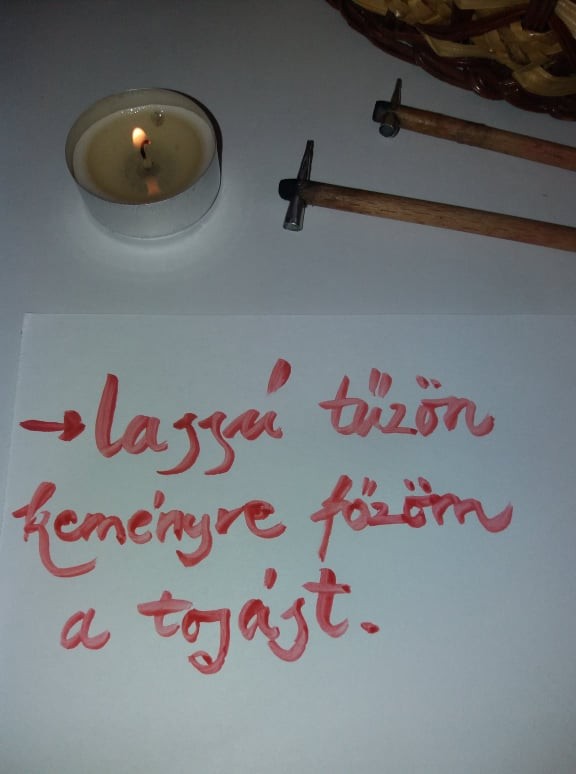 → lassú tűzön
keményre főzöm
a tojást.